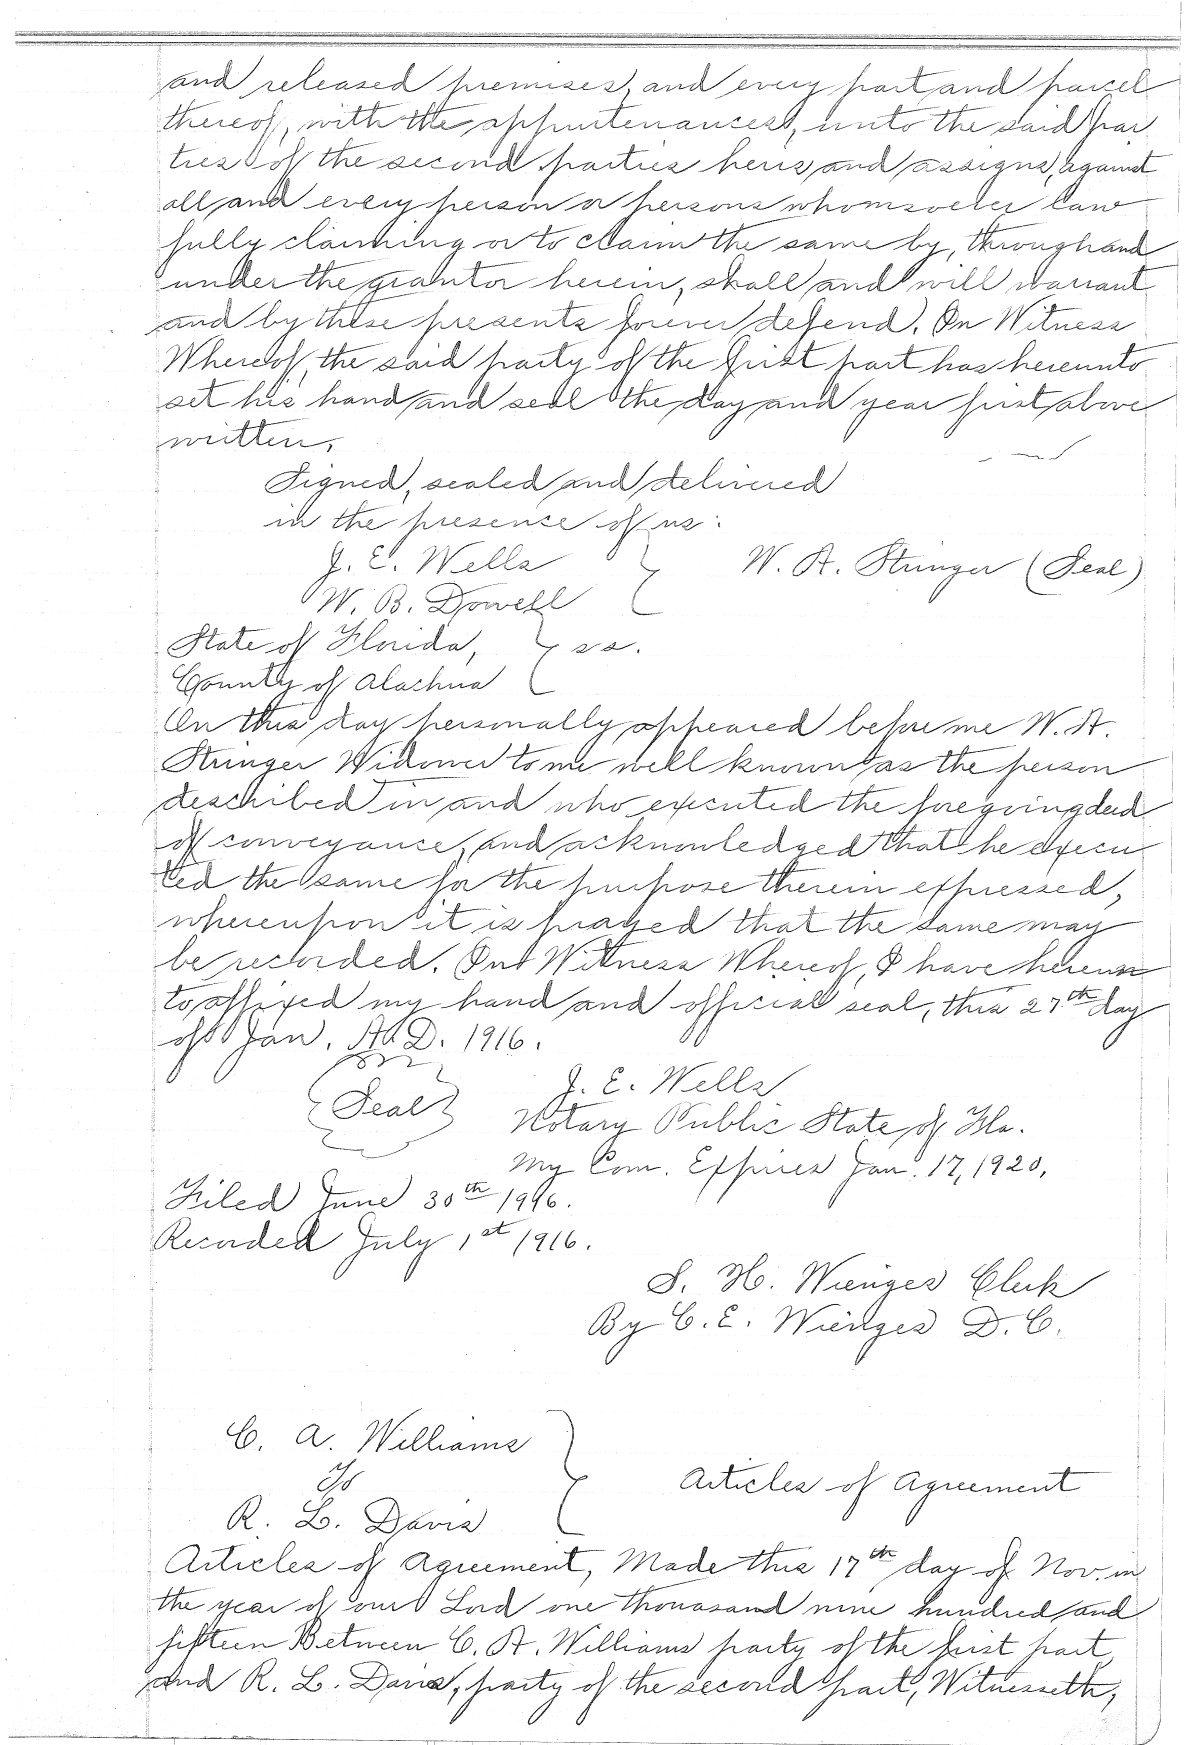 and released premises, and every part and parcel
thereof, with the appurtenances, unto the said par
ties of the second parties heirs and assigns, against
all and every person or persons whomsoever law
fully claiming or to claim the same by, through and
under the grantor herein, shall and will warrant
and by these presents forever defend. In Witness
Whereof, the said party of the first part has hereunto
set his hand and seal the day and year first above
written,
Signed, sealed and delivered
in the presence of us:
J. E. Wells
W. A. Stringer (Seal)
W. B. Dowell
State of Florida, ss.
County of Alachua
On this day personally appeared before me W. A.
Stringer Widower to me well known as the person
described in and who executed the foregoing deed
of conveyance, and acknowledged that he execu
ted the same for the purpose therein expressed,
whereupon it is prayed that the same may
be recorded. In Witness Whereof, I have hereun
to affixed my hand and official seal, this 27th day
of Jan. A. D. 1916.
J. E. Wells
Seal
Notary Public State of Fla.
My Com. Expires Jan. 17, 1920,
Filed June 30th 1916.
Recorded July 1st 1916.
S. H. Wienges Clerk
By C. E. Wienges D. C.
C. A. Williams
To
Articles of Agreement
R. L. Davis
Articles of Agreement, Made this 17th day of Nov. in
the year of our Lord one thousand nine hundred and
fifteen Between C. A. Williams party of the first part,
and R. L. Davis, party of the second part, Witnesseth,